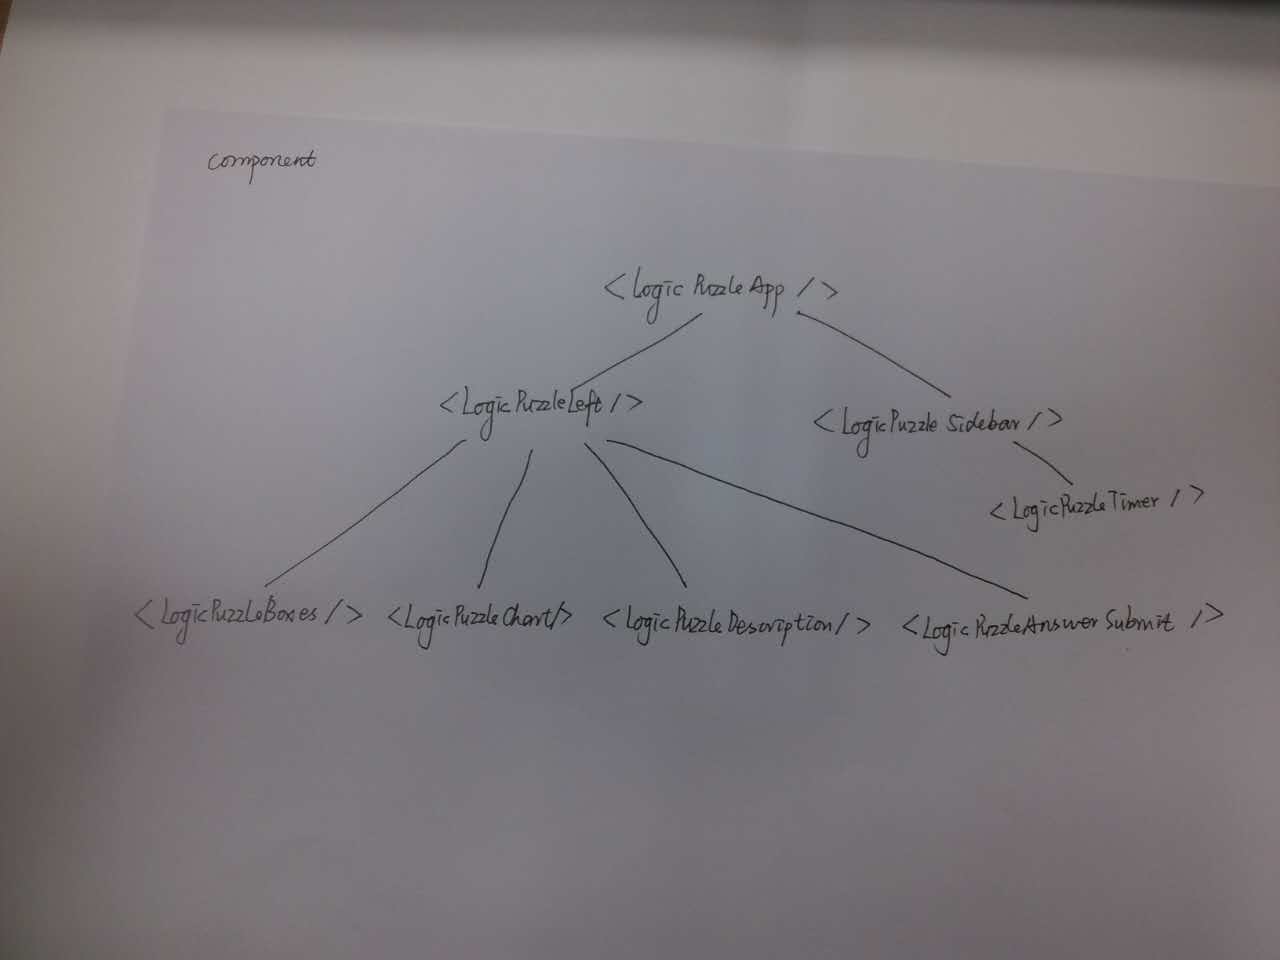 component
<LogicPuzzleApp />
<LogicPuzzleLeft />
<LogicPuzzle Sidebar />
<LogicPuzzleTimer />
<LogicPuzzleBoxes /> <LogicPuzzleChart/> <LogicPuzzleDescription/> <LogicPuzzleAnswerSubmit />